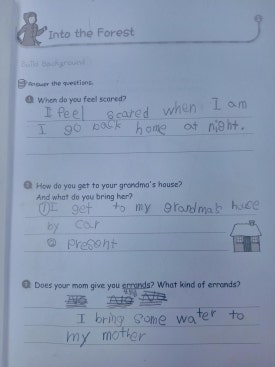 Into the Forest
Build background
Answer the questions.
1 When do you feel scared?
I feel scared when I am
I go back home at night.
2 How do you get to your grandma's house?
And what do you bring her?
① I get to my grandmab huce
by car
② Present
3 Does your mom give you errands? What kind of errands?
I bring some water to
my mother